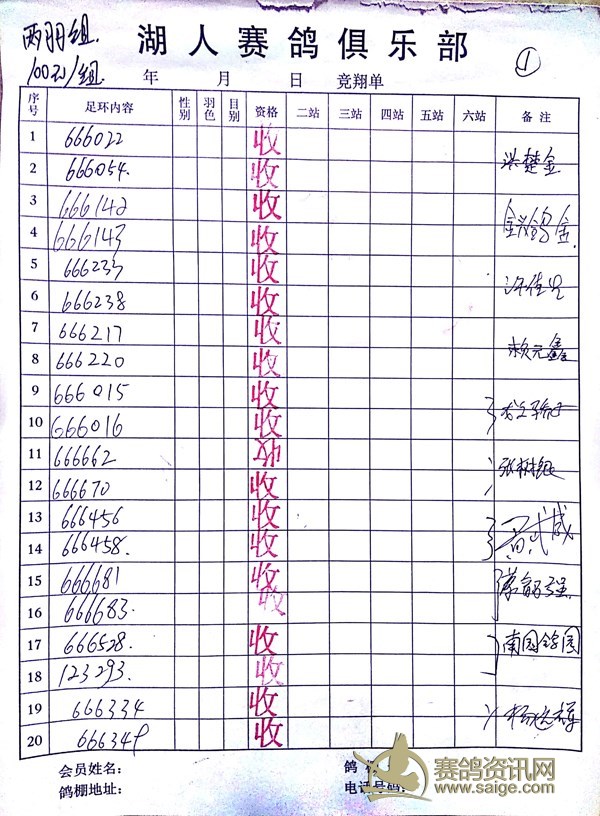 两羽组.
100元/组.
湖人赛鸽俱乐部
①
年 月 日 竞翔单
序号 足环内容 性别 羽色 目别 资格 二站 三站 四站 五站 六站 备注
1 666022 收
2 666054. 收 洪楚金
3 666142 收
4 666143 收
5 666233 收
6 666238 收
7 666217 收
8 666220 收
9 666015 收
10 666016 收
11 666662
12 666670 收
13 666456 收
14 666458. 收
15 666681 收
16 666683. 收
17 666528. 收 南园鸽园
18 123293. 收
19 666334 收
20 666349 收
会员姓名:
鸽
鸽棚地址:
电话号码:
赛鸽资讯网
www.saige.com